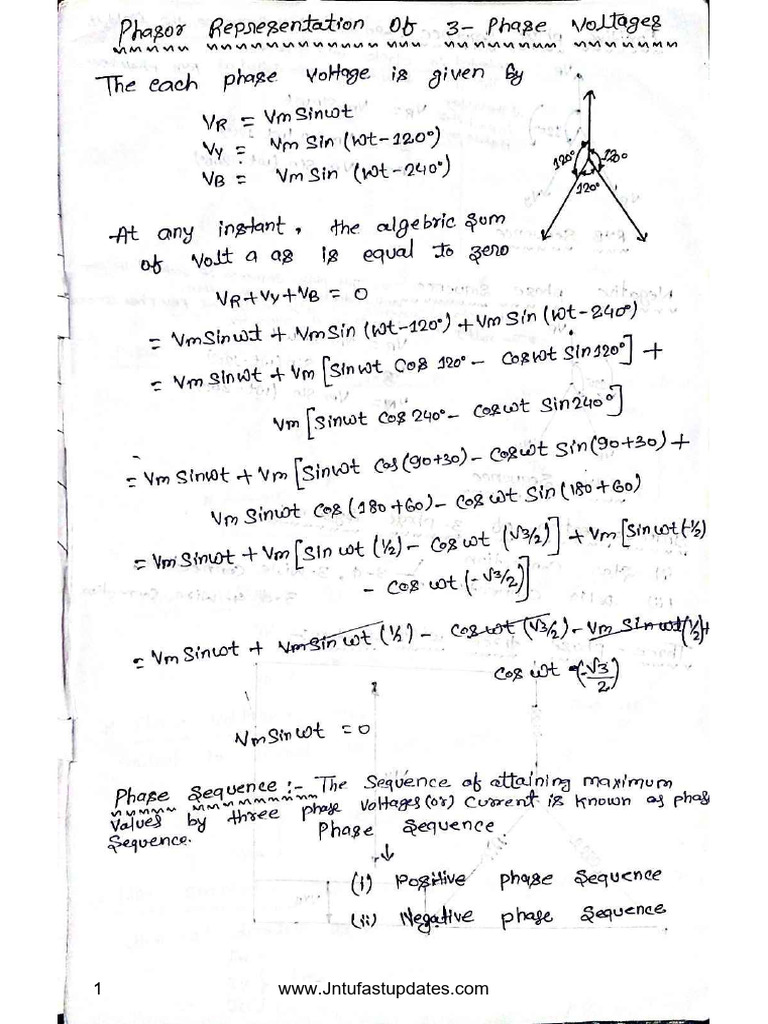 Phasor Representation Of 3- Phase Voltages
The each phase Voltage is given by
VR = Vm Sinwt
Vy = Vm Sin (wt-120°)
VB = Vm Sin (wt-240°)
120° 120
120°
At any instant, the algebric sum
of Volt a as is equal to zero
VR+Vy+VB = 0
= Vm Sinwt + Vm Sin (wt-120°) + Vm Sin (wt-240°)
= Vm Sinwt + Vm [Sinwt Cos 120° - Coswt Sin120°] +
Vm [Sinwt cos 240° - coswt Sin240°]
= Vm Sinwt + Vm [Sinwt cos(90+30) - coswt Sin(90+30) +
Vm Sinwt cos (180+60) - cos wt Sin (180+60)
= Vm Sinwt + Vm [Sin wt (½) - Cos wt (√3/2)] + Vm [Sinwt (-½)
- cos wt (-√3/2)]
= Vm Sinwt + Vm Sin wt (½) - Cos wt (√3/2) - Vm Sin wt (½) +
cos wt (-√3/2)
Vm Sin wt = 0
Phase Sequence :- The Sequence of attaining maximum
Values by three phase Voltages (or) Current is known as phas
Sequence. Phase Sequence
↓
(i) Positive phase Sequence
(ii) Negative phase Sequence
1 www.Jntufastupdates.com